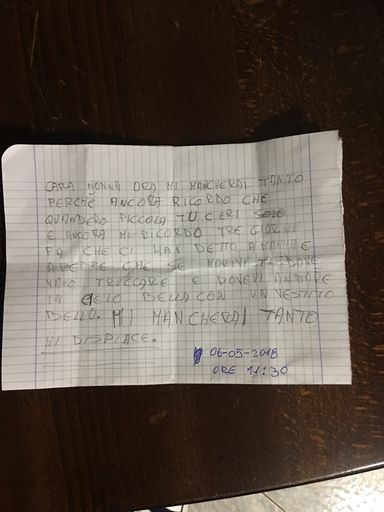 CARA NONNA ORA MI MANCHERAI TANTO
PERCHÈ ANCORA RICORDO CHE
QUANDERO PICCOLA TU CERI SOLO
E ANCORA MI RICORDO TRE GIORNI
FA CHE CI HAI DETTO A MAMMA E
A ME CHE SE MORIVI TI DOVE
VAMO TRUCCARE E DOVEVI ANDARE
IN CIELO BELLA CON UN VESTITO
BELLO. MI MANCHERAI TANTO
MI DISPIACE.
06-05-2018
ORE 11:30